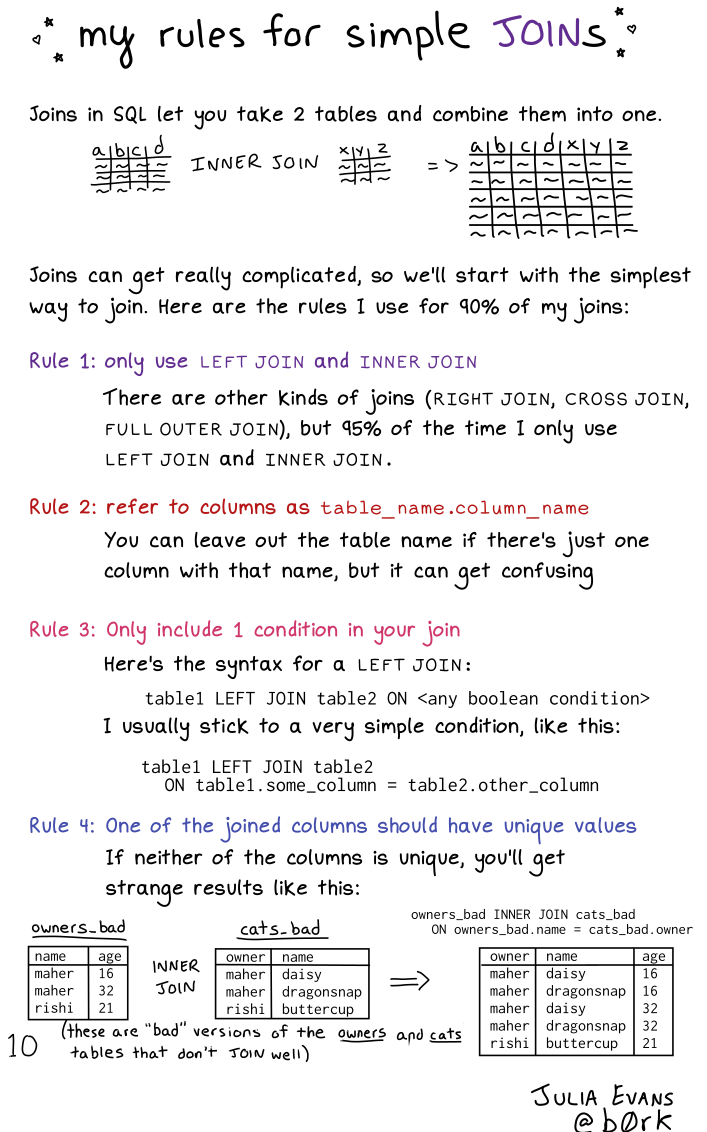 my rules for simple JOINs
Joins in SQL let you take 2 tables and combine them into one.
a b c d INNER JOIN x y z => a b c d x y z
Joins can get really complicated, so we'll start with the simplest
way to join. Here are the rules I use for 90% of my joins:
Rule 1: only use LEFT JOIN and INNER JOIN
There are other kinds of joins (RIGHT JOIN, CROSS JOIN,
FULL OUTER JOIN), but 95% of the time I only use
LEFT JOIN and INNER JOIN.
Rule 2: refer to columns as table_name.column_name
You can leave out the table name if there's just one
column with that name, but it can get confusing
Rule 3: Only include 1 condition in your join
Here's the syntax for a LEFT JOIN:
table1 LEFT JOIN table2 ON <any boolean condition>
I usually stick to a very simple condition, like this:
table1 LEFT JOIN table2
ON table1.some_column = table2.other_column
Rule 4: One of the joined columns should have unique values
If neither of the columns is unique, you'll get
strange results like this:
owners_bad
name age
maher 16
maher 32
rishi 21
INNER
JOIN
cats_bad
owner name
maher daisy
maher dragonsnap
rishi buttercup
=>
owners_bad INNER JOIN cats_bad
ON owners_bad.name = cats_bad.owner
owner name age
maher daisy 16
maher dragonsnap 16
maher daisy 32
maher dragonsnap 32
rishi buttercup 21
(these are "bad" versions of the owners and cats
tables that don't JOIN well)
10
JULIA EVANS
@b0rk